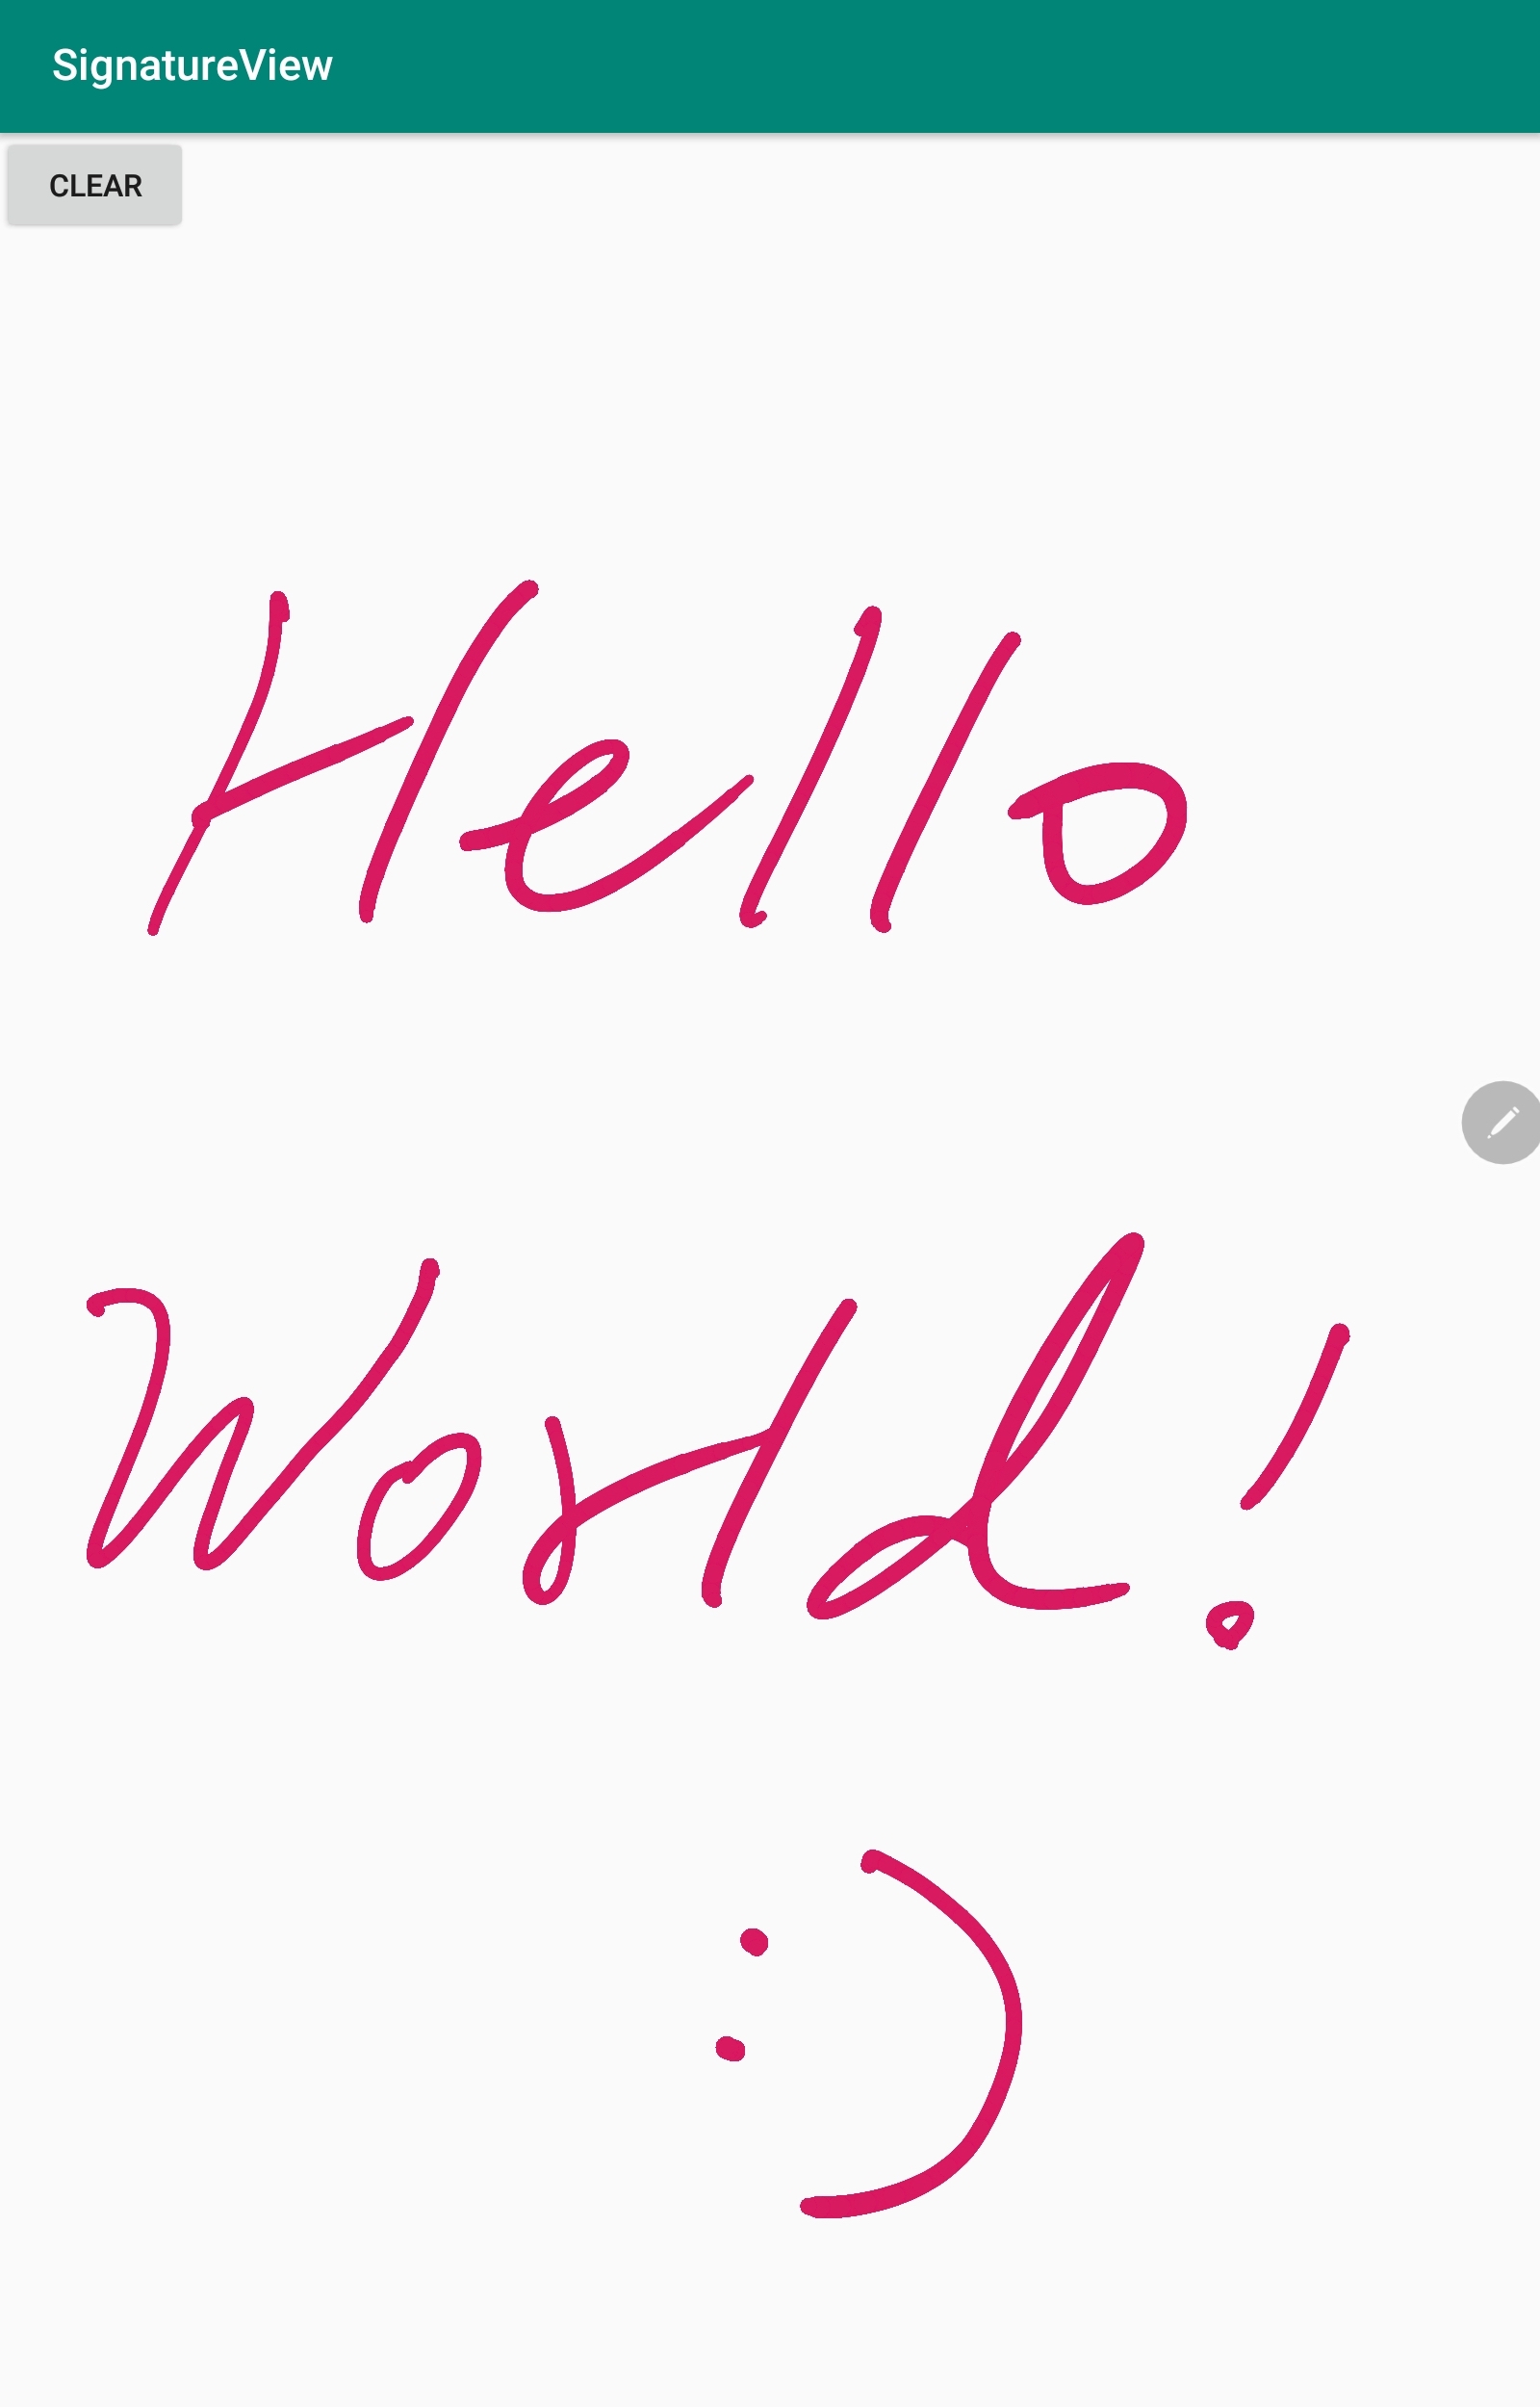 SignatureView
CLEAR
Hello
World!
:)